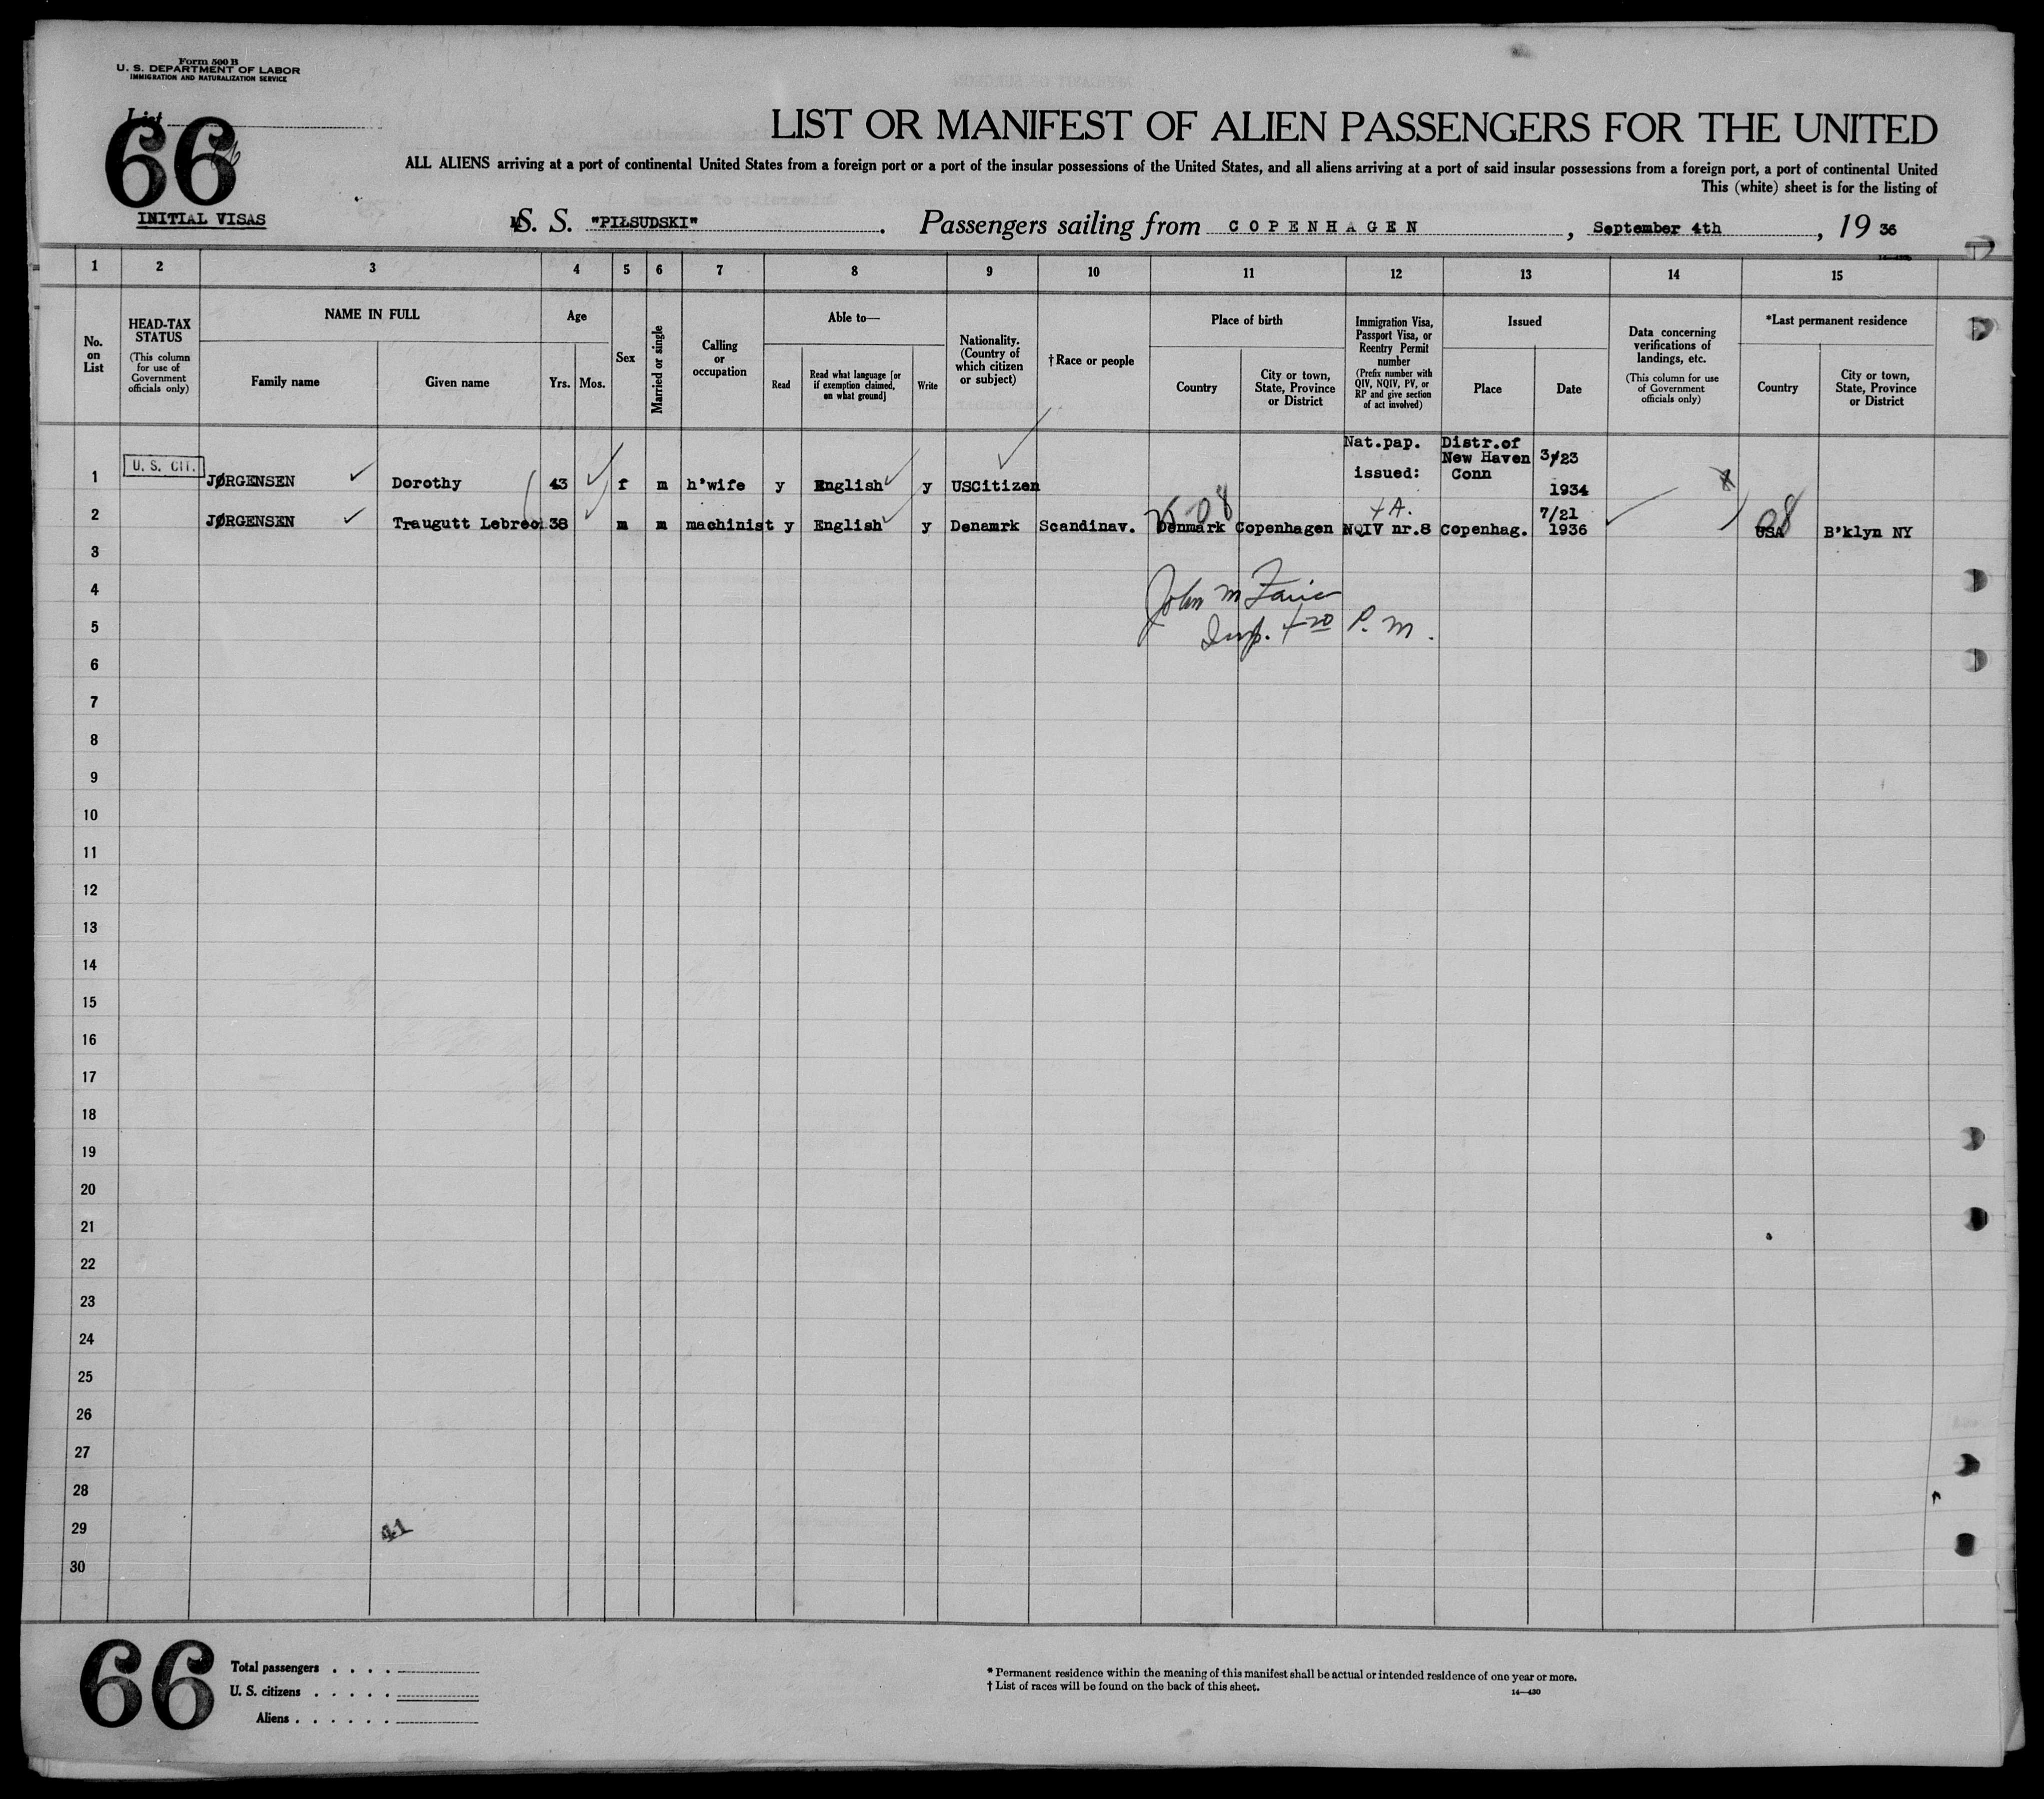 Form 500 B
U. S. DEPARTMENT OF LABOR
IMMIGRATION AND NATURALIZATION SERVICE
List
66
INITIAL VISAS
LIST OR MANIFEST OF ALIEN PASSENGERS FOR THE UNITED
ALL ALIENS arriving at a port of continental United States from a foreign port or a port of the insular possessions of the United States, and all aliens arriving at a port of said insular possessions from a foreign port, a port of continental United
This (white) sheet is for the listing of
S. S. "PIŁSUDSKI" . Passengers sailing from COPENHAGEN , September 4th , 19 36
1 2 3 4 5 6 7 8 9 10 11 12 13 14 15
No. on List
HEAD-TAX STATUS
(This column for use of Government officials only)
NAME IN FULL
Family name
Given name
Age
Yrs. Mos.
Sex
Married or single
Calling or occupation
Able to—
Read
Read what language [or if exemption claimed, on what ground]
Write
Nationality. (Country of which citizen or subject)
†Race or people
Place of birth
Country
City or town, State, Province or District
Immigration Visa, Passport Visa, or Reentry Permit number
(Prefix number with QIV, NQIV, PV, or RP and give section of act involved)
Issued
Place
Date
Data concerning verifications of landings, etc.
(This column for use of Government officials only)
*Last permanent residence
Country
City or town, State, Province or District
1 U. S. CIT. JØRGENSEN Dorothy 43 f m h'wife y English y USCitizen Nat.pap. issued: Distr.of New Haven Conn 3/23 1934
2 JØRGENSEN Traugutt Lebrec 38 m m machinist y English y Denamrk Scandinav. Denmark Copenhagen NQIV nr.8 Copenhag. 7/21 1936 USA B'klyn NY
08
3
4 John M
5 Insp. P. M.
6
7
8
9
10
11
12
13
14
15
16
17
18
19
20
21
22
23
24
25
26
27
28
29 41
30
66
Total passengers
U. S. citizens
Aliens
* Permanent residence within the meaning of this manifest shall be actual or intended residence of one year or more.
† List of races will be found on the back of this sheet.
14—430